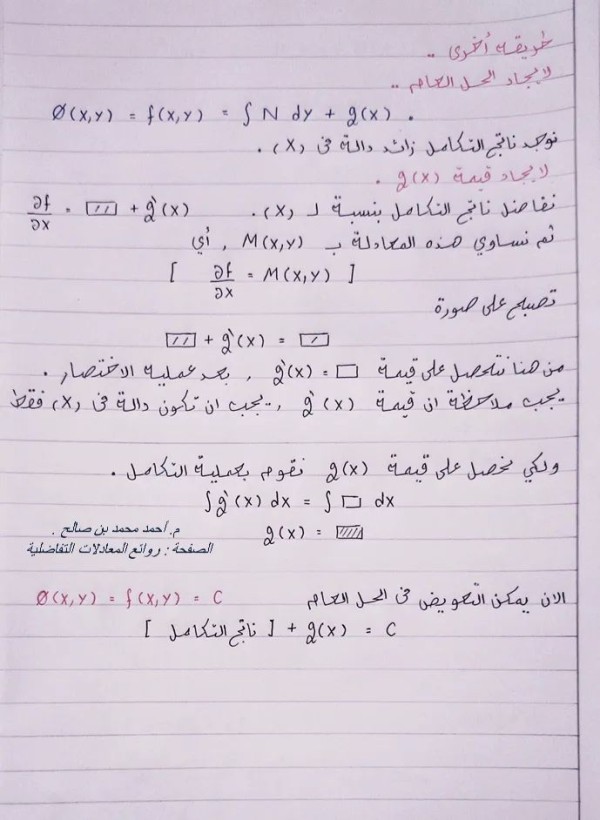 طريقه أخرى ..
لايجاد الحل العام ..
Ø(x,y) = f(x,y) = ∫ N dy + g(x) .
نوجد ناتج التكامل زائد دالة في (x) .
لايجاد قيمة g(x) .
نفاضل ناتج التكامل بنسبة لـ (x) . ∂f/∂x = ▭ + g`(x)
ثم نساوي هذه المعادلة بـ M(x,y) , أي
[ ∂f/∂x = M(x,y) ]
تصبح على صورة
▭ + g`(x) = ▭
من هنا نتحصل على قيمة g`(x) = ▭ , بعد عملية الاختصار .
يجب ملاحظة ان قيمة g`(x) , يجب ان تكون دالة في (x) فقط
ولكي نحصل على قيمة g(x) نقوم بعملية التكامل .
∫ g`(x) dx = ∫ ▭ dx
g(x) = ▭
م. أحمد محمد بن صالح .
الصفحة : روائع المعادلات التفاضلية
الان يمكن التعويض في الحل العام Ø(x,y) = f(x,y) = C
[ ناتج التكامل ] + g(x) = C